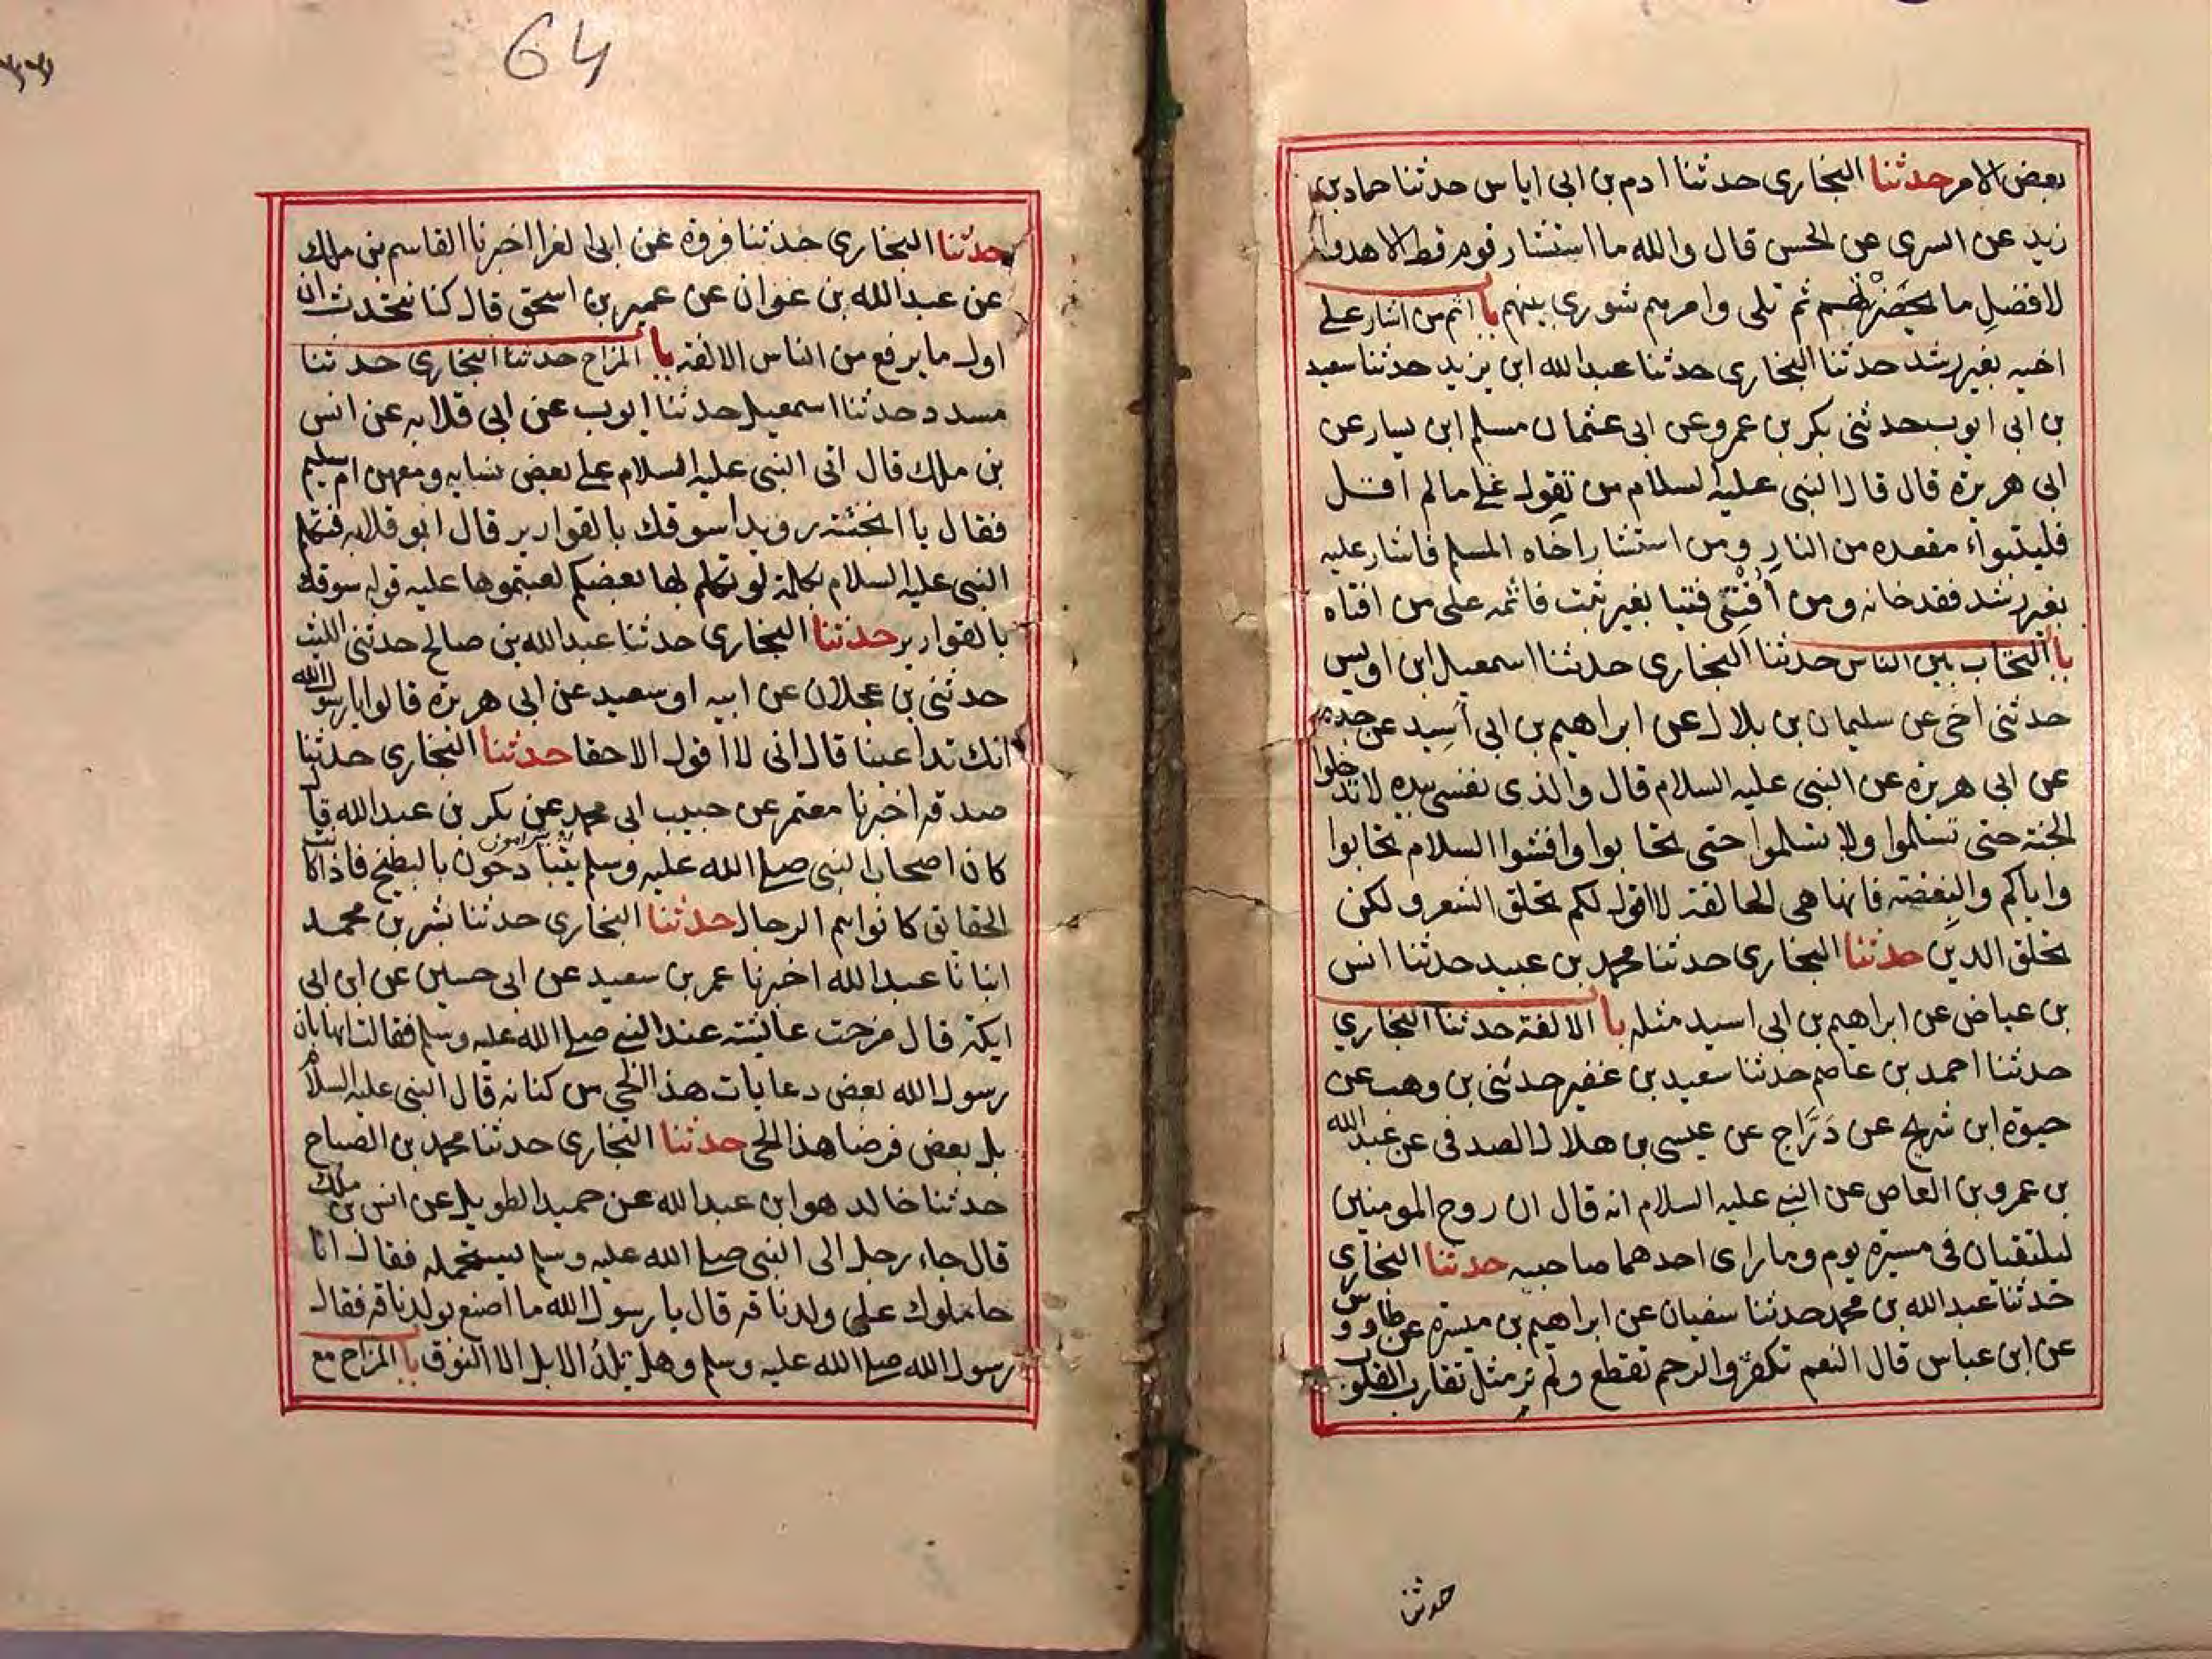 بعض الامر حدثنا البخارى حدثنا ادم بن ابى اياس حدثنا حماد بن
زيد عن السرى عن الحسن قال والله ما استشار قوم قط الا هدوا
لافضل ما بحضرتهم ثم تلى وامرهم شورى بينهم با اثم من اشار على
اخيه بغير رشد حدثنا البخارى حدثنا عبد الله ابن يزيد حدثنا سعيد
بن ابى ايوب حدثنى بكر بن عمرو عن ابى عثمان مسلم ابن يسار عن
ابى هريرة قال قال النبى عليه السلام من تقول على مالم اقل
فليتبواء مقعده من النار ومن استشار اخاه المسلم فاشار عليه
بغير رشد فقد خانه ومن افتى فتيا بغير ثبت فاثمه على من افتاه
با التحاب بين الناس حدثنا البخارى حدثنا اسمعيل ابن اويس
حدثنى اخى عن سليمان بن بلال عن ابراهيم بن ابى اسيد عن جده
عن ابى هريرة عن النبى عليه السلام قال والذى نفسى بيده لا تدخلوا
الجنة حتى تسلموا ولا تسلموا حتى تحابوا وافشوا السلام تحابوا
واياكم والبغضة فانها هى الحالقة لا اقول لكم تحلق الشعر ولكن
تحلق الدين حدثنا البخارى حدثنا محمد بن عبيد حدثنا انس
بن عياض عن ابراهيم بن ابى اسيد مثله با الالفة حدثنا البخاري
حدثنا احمد بن عاصم حدثنا سعيد بن عفير حدثنى بن وهب عن
حيوة ابن شريح عن دَرَّاج عن عيسى بن هلال الصدفى عن عبد الله
بن عمرو بن العاص عن النبي عليه السلام انه قال ان روح المومنين
ليلتقيان فى مسيرة يوم وما راى احدهما صاحبه حدثنا البخاري
حدثنا عبد الله بن محمد حدثنا سفيان عن ابراهيم بن ميسرة عن طاووس
عن ابن عباس قال النعم تكفر والرحم تقطع ولم نر مثل تقارب القلوب
حدثنا
64
حدثنا البخارى حدثنا فروة عن ابى لغرا اخبرنا القاسم بن ملك
عن عبد الله بن عوان عن عمير بن اسحق قال كنا نتحدث ان
اول ما يرفع من الناس الالفة با المزاح حدثنا البخارى حدثنا
مسدد حدثنا اسمعيل حدثنا ايوب عن ابى قلابه عن انس
بن ملك قال اتى النبى عليه السلام على بعض نسايه ومعهن ام سليم
فقال يا انجشة رويدا سوقك بالقوارير قال ابو قلابه فتكلم
النبى عليه السلام بكلمة لو تكلم بها بعضكم لعبتموها عليه قوله سوقك
بالقوارير حدثنا البخارى حدثنا عبد الله بن صالح حدثنى الليث
حدثنى بن عجلان عن ابيه او سعيد عن ابى هريرة قالوا يا رسول الله
انك تداعبنا قال انى لا اقول الا حقا حدثنا البخارى حدثنا
صدقه اخبرنا معتمر عن حبيب ابى محمد عن بكر بن عبد الله قال
كان اصحاب النبى صلى الله عليه وسلم يتبادحون بالبطيخ فاذا كانت
الحقائق كانوا هم الرجال حدثنا البخارى حدثنا بشر بن محمد
انبانا عبد الله اخبرنا عمر بن سعيد عن ابى حسين عن ابن ابى
ايكة قال مزحت عائشة عند النبي صلى الله عليه وسلم فقالت امها يا
رسول الله بعض دعابات هذا الحى من كنانه قال النبى عليه السلام
بل بعض فرضا هذا الحى حدثنا البخارى حدثنا محمد بن الصباح
حدثنا خالد هو ابن عبد الله عن حميد الطويل عن انس بن ملك
قال جاء رجل الى النبى صلى الله عليه وسلم ليستحمله فقال انا
حاملوك على ولد ناقه قال يا رسول الله ما اصنع بولد ناقه فقال
رسول الله صلى الله عليه وسلم وهل تلد الابل الا النوق با المزاح مع